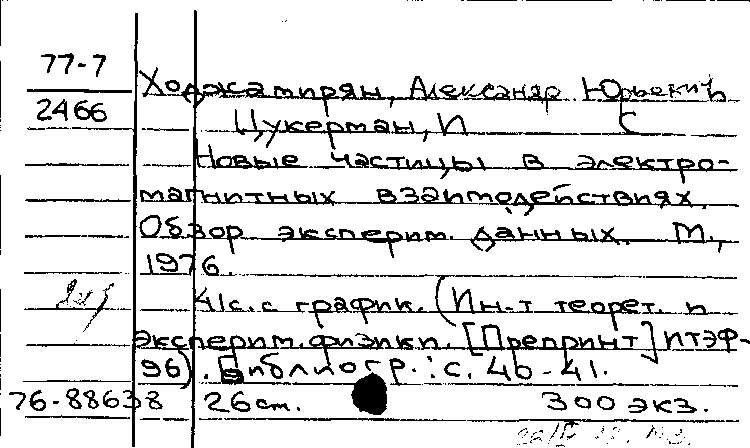 77-7
2466
Ходжамирян, Александр Юрьевич
Цукерман, И С
Новые частицы в электро-
магнитных взаимодействиях.
Обзор эксперим. данных. М.,
1976.
41с. с график. (Ин-т теорет. и
эксперим. физики. [Препринт] ИТЭФ-
96). Библиогр.: с. 40-41.
76-88638 26 см. 300 экз.